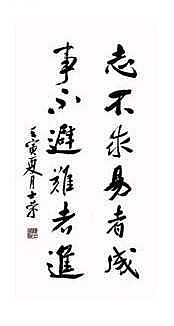 志不求易者成
事不避難者進
壬寅夏月士榮